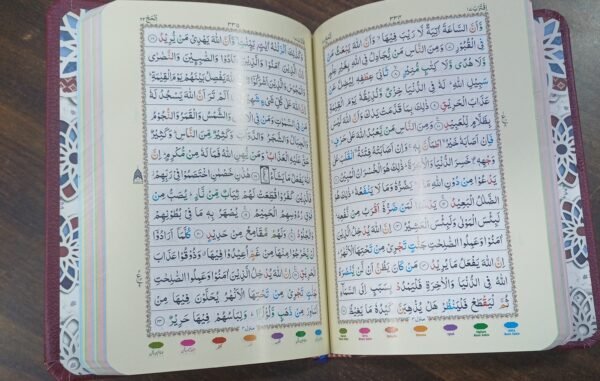 اِقْتَرَبَ ١٧
٣٣٤
وَّاَنَّ السَّاعَةَ اٰتِيَةٌ لَّا رَيْبَ فِيْهَا وَاَنَّ اللّٰهَ يَبْعَثُ مَنْ
فِي الْقُبُوْرِ وَمِنَ النَّاسِ مَنْ يُّجَادِلُ فِي اللّٰهِ بِغَيْرِ عِلْمٍ
وَّلَا هُدًى وَّلَا كِتٰبٍ مُّنِيْرٍ ثَانِيَ عِطْفِهٖ لِيُضِلَّ عَنْ
سَبِيْلِ اللّٰهِ لَهٗ فِي الدُّنْيَا خِزْيٌ وَّنُذِيْقُهٗ يَوْمَ الْقِيٰمَةِ
عَذَابَ الْحَرِيْقِ ذٰلِكَ بِمَا قَدَّمَتْ يَدٰكَ وَاَنَّ اللّٰهَ لَيْسَ
بِظَلَّامٍ لِّلْعَبِيْدِ وَمِنَ النَّاسِ مَنْ يَّعْبُدُ اللّٰهَ عَلٰى حَرْفٍ
فَاِنْ اَصَابَهٗ خَيْرُ اطْمَاَنَّ بِهٖ وَاِنْ اَصَابَتْهُ فِتْنَةُ انْقَلَبَ عَلٰى
وَجْهِهٖ خَسِرَ الدُّنْيَا وَالْاٰخِرَةَ ذٰلِكَ هُوَ الْخُسْرَانُ الْمُبِيْنُ
يَدْعُوْا مِنْ دُوْنِ اللّٰهِ مَا لَا يَضُرُّهٗ وَمَا لَا يَنْفَعُهٗ ذٰلِكَ هُوَ
الضَّلٰلُ الْبَعِيْدُ يَدْعُوْا لَمَنْ ضَرُّهٗ اَقْرَبُ مِنْ نَّفْعِهٖ
لَبِئْسَ الْمَوْلٰى وَلَبِئْسَ الْعَشِيْرُ اِنَّ اللّٰهَ يُدْخِلُ الَّذِيْنَ
اٰمَنُوْا وَعَمِلُوا الصّٰلِحٰتِ جَنّٰتٍ تَجْرِيْ مِنْ تَحْتِهَا الْاَنْهٰرُ
اِنَّ اللّٰهَ يَفْعَلُ مَا يُرِيْدُ مَنْ كَانَ يَظُنُّ اَنْ لَّنْ يَّنْصُرَهُ
اللّٰهُ فِي الدُّنْيَا وَالْاٰخِرَةِ فَلْيَمْدُدْ بِسَبَبٍ اِلَى السَّمَآءِ
ثُمَّ لْيَقْطَعْ فَلْيَنْظُرْ هَلْ يُذْهِبَنَّ كَيْدُهٗ مَا يَغِيْظُ
اَلْحَجّ ٢٢
٣٣٥
وَكَذٰلِكَ اَنْزَلْنٰهُ اٰيٰتٍ بَيِّنٰتٍ وَّاَنَّ اللّٰهَ يَهْدِيْ مَنْ يُّرِيْدُ
اِنَّ الَّذِيْنَ اٰمَنُوْا وَالَّذِيْنَ هَادُوْا وَالصّٰبِئِيْنَ وَالنَّصٰرٰى
وَالْمَجُوْسَ وَالَّذِيْنَ اَشْرَكُوْا اِنَّ اللّٰهَ يَفْصِلُ بَيْنَهُمْ يَوْمَ الْقِيٰمَةِ
اِنَّ اللّٰهَ عَلٰى كُلِّ شَيْءٍ شَهِيْدٌ اَلَمْ تَرَ اَنَّ اللّٰهَ يَسْجُدُ لَهٗ
مَنْ فِي السَّمٰوٰتِ وَمَنْ فِي الْاَرْضِ وَالشَّمْسُ وَالْقَمَرُ وَالنُّجُوْمُ
وَالْجِبَالُ وَالشَّجَرُ وَالدَّوَآبُّ وَكَثِيْرٌ مِّنَ النَّاسِ وَكَثِيْرٌ
حَقَّ عَلَيْهِ الْعَذَابُ وَمَنْ يُّهِنِ اللّٰهُ فَمَا لَهٗ مِنْ مُّكْرِمٍ اِنَّ
اللّٰهَ يَفْعَلُ مَا يَشَآءُ هٰذٰنِ خَصْمٰنِ اخْتَصَمُوْا فِيْ رَبِّهِمْ
فَالَّذِيْنَ كَفَرُوْا قُطِّعَتْ لَهُمْ ثِيَابٌ مِّنْ نَّارٍ يُصَبُّ مِنْ
فَوْقِ رُءُوْسِهِمُ الْحَمِيْمُ يُصْهَرُ بِهٖ مَا فِيْ بُطُوْنِهِمْ
وَالْجُلُوْدُ وَلَهُمْ مَّقَامِعُ مِنْ حَدِيْدٍ كُلَّمَا اَرَادُوْا
اَنْ يَّخْرُجُوْا مِنْهَا مِنْ غَمٍّ اُعِيْدُوْا فِيْهَا وَذُوْقُوْا عَذَابَ
الْحَرِيْقِ اِنَّ اللّٰهَ يُدْخِلُ الَّذِيْنَ اٰمَنُوْا وَعَمِلُوا الصّٰلِحٰتِ
جَنّٰتٍ تَجْرِيْ مِنْ تَحْتِهَا الْاَنْهٰرُ يُحَلَّوْنَ فِيْهَا مِنْ
اَسَاوِرَ مِنْ ذَهَبٍ وَّلُؤْلُؤًا وَلِبَاسُهُمْ فِيْهَا حَرِيْرٌ